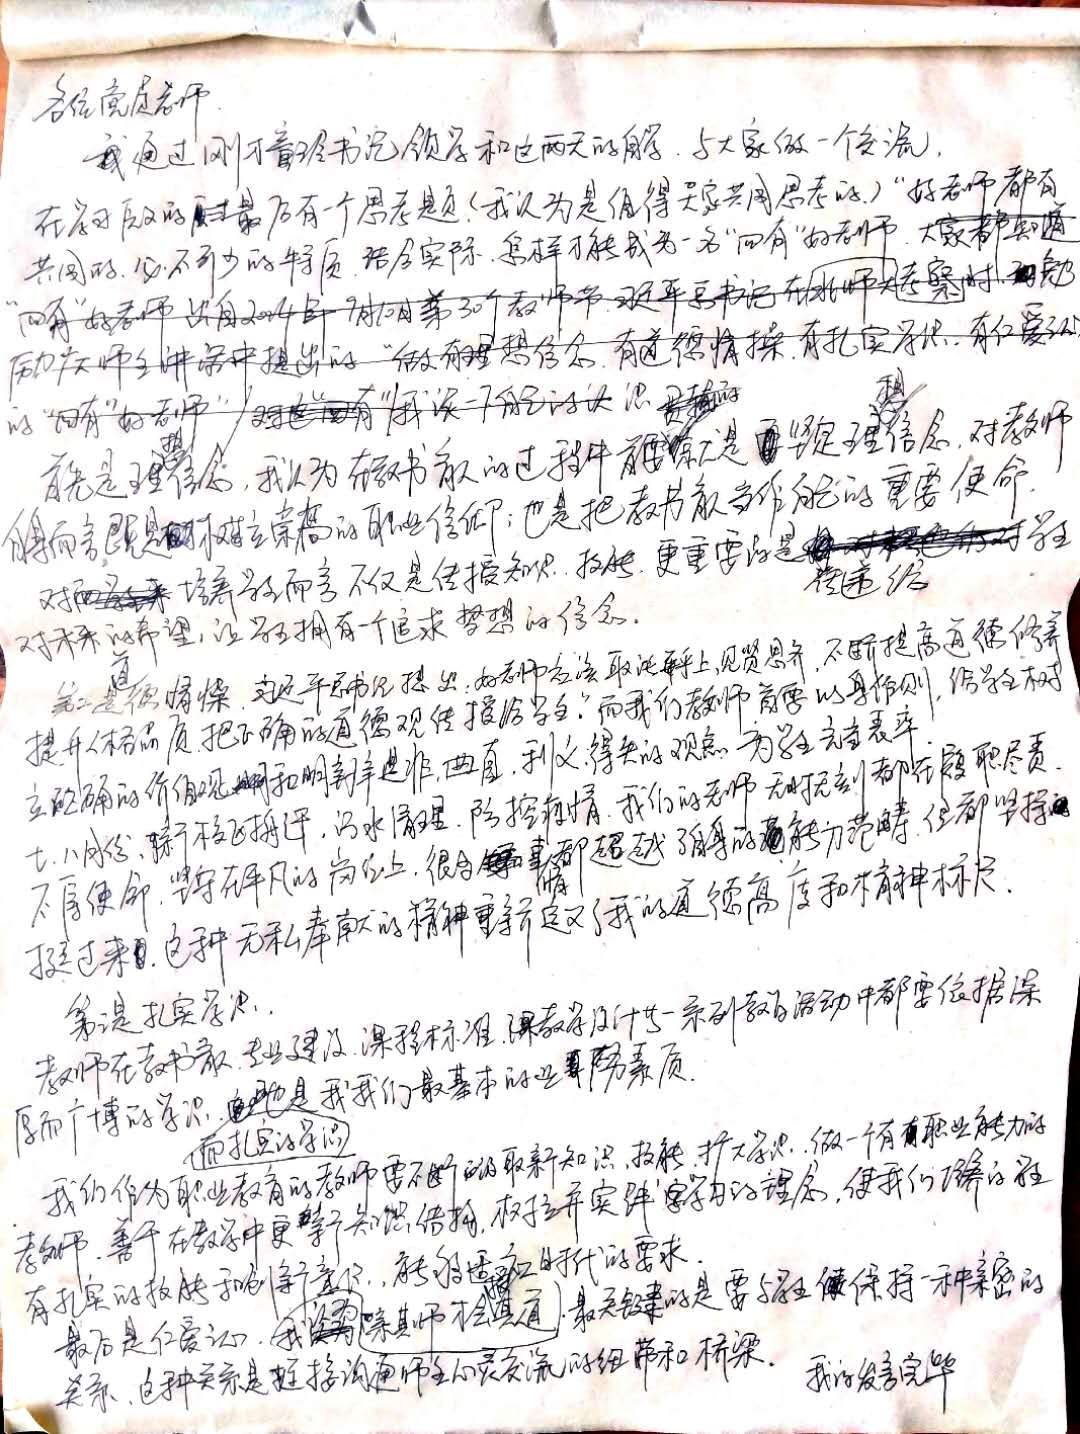 各位党员老师
我通过刚才童玲书记领学和这两天的自学.与大家做一个交流,
在学习原文的最后有一个思考题(我认为是值得大家共同思考的)"好老师都有
共同的.必不可少的特质.结合实际.怎样才能成为一名"四有"好老师.大家都知道
"四有"好老师出自2014年9月10日第30个教师节.习近平总书记在北师大考察时.勉
励广大师生讲学中提出的"做有理想信念.有道德情操.有扎实学识.有仁爱之心
的"四有"好老师")我谈一下自己的认识
首先是理想信念,我认为在教书育人的过程中首要就是要坚定理想信念.对教师
自身而言既是树立崇高的职业信仰;也是把教书育人当作自己的重要使命.
对培养学生而言不仅是传授知识.技能.更重要的是传递给学生
对未来的希望,让学生拥有一个追求梦想的信念.
第二是道德情操.习近平总书记提出:好老师应该取法乎上,见贤思齐,不断提高道德修养
提升人格品质,把正确的道德观传授给学生.而我们教师首要以身作则,给学生树
立正确的价值观和明辨是非,曲直,利义,得失的观点.为学生立当表率.
七.八月份,新校区搬迁,污水清理.防控疫情.我们的老师无时无刻都在履职尽责.
不辱使命.坚守在平凡的岗位上,很多事情都超越了自身的能力范畴.但都坚持
挺过来.这种无私奉献的精神重新定义了我的道德高度和精神标尺.
第三是扎实学识.
教师在教书育人.专业建设.课程标准.教学设计等一系列教育活动中都要依据深
厚而广博的学识.也是我们最基本的业务素质.
而扎实的学识
我们作为职业教育的教师要不断的汲取新知识,技能.扩大学识.做一个有职业能力的
教师.善于在教学中更新知识结构,树立并实践学习的理念,使我们培养的学生
有扎实的技能和创新意识,能够适应时代的要求.
最后是仁爱之心.我认为亲其师才会信其道.最关键的是要与学生保持一种亲密的
关系.这种关系是链接沟通师生心灵交流的纽带和桥梁.
我的发言完毕